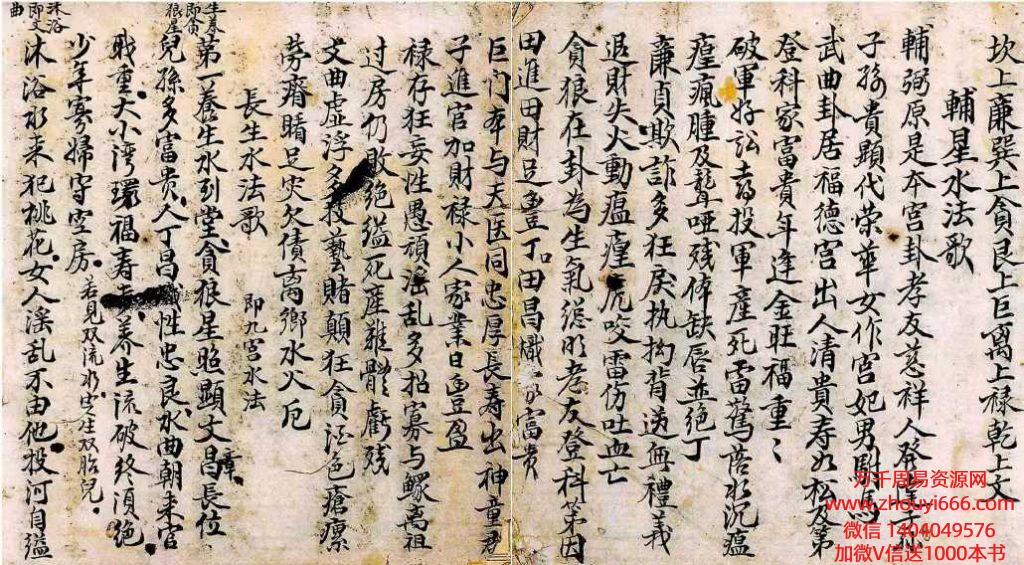 坎上廉巽上貪艮上巨离上禄乾上文
輔星水法歌
輔弼原是本宫卦孝友慈祥人
子孫貴顯代荣華女作宫妃男駙馬
武曲卦居福德宫出人清貴寿如松
登科家富貴年逢金旺福重〻
破軍好訟去投軍産死雷驚
瘟瘋腫及聾啞残
廉貞欺詐多狂戾执拗背送無禮義
退財失火動瘟瘟
咬雷伤吐血亡
貪狼在卦為生氣聪明孝友登科第因
田進田財足
丁口田昌熾
富貴
巨门本与天医同忠厚長寿出神童君
子進官加財禄小人家業日豊盈
禄存狂妄性愚頑淫乱多招寡与鰥离祖
过房仍敗絕缢死産难體虧残
文曲虚浮多技藝賭顛狂貪酒色瘡
足灾欠债离鄉水火厄
長生水法歌
即九宫水法
第一養生水到堂貪狼星照顯文章
昌長位
兒孫多富贵人丁昌熾性忠良水曲朝来官
职重大小湾環福寿
養生流破終須绝
少年寡婦守空房
若見双流水定生双胎兒
沐浴水来犯桃花女人淫乱不由他投河自缢
生養
即貪
狼星
沐浴
即文
曲
万千周易资源网
www.zhouyi666.com
微信 1404049576
加微V信送1000本书